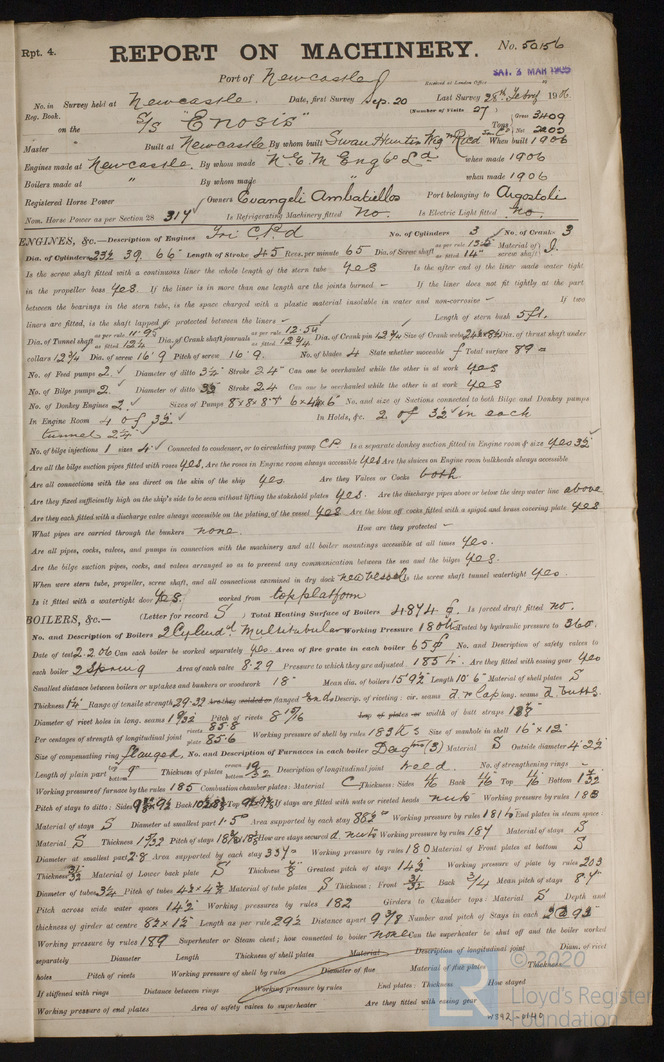 Rpt. 4.
REPORT ON MACHINERY.
No. 50156
Port of Newcastle
Received at London Office
SAT. 3 MAR 1906
No. in Survey held at Newcastle. Date, first Survey Sep. 20 Last Survey 28th Feb 1906
Reg. Book. (Number of Visits 27)
on the S/S "Enosis" Tons Gross 3409 Net 2202
Master Built at Newcastle By whom built Swan Hunter Wigm Rcd When built 1906
Engines made at Newcastle. By whom made N.E.M Engg Ld when made 1906
Boilers made at " By whom made " when made 1906
Registered Horse Power Owners Evangeli Ambatiellos Port belonging to Argostoli
Nom. Horse Power as per Section 28 314 Is Refrigerating Machinery fitted No. Is Electric Light fitted no.
ENGINES, &c.—Description of Engines Tri C. No. of Cylinders 3 No. of Cranks 3
Dia. of Cylinders 23½ 39. 66 Length of Stroke 45 Revs. per minute 65 Dia. of Screw shaft as per rule as fitted 14" Material of screw shaft I.
Is the screw shaft fitted with a continuous liner the whole length of the stern tube Yes Is the after end of the liner made water tight
in the propeller boss Yes. If the liner is in more than one length are the joints burned — If the liner does not fit tightly at the part
between the bearings in the stern tube, is the space charged with a plastic material insoluble in water and non-corrosive — If two
liners are fitted, is the shaft lapped or protected between the liners — Length of stern bush 5ft.
Dia. of Tunnel shaft as per rule 11.95 as fitted 12¼ Dia. of Crank shaft journals as per rule 12.54 as fitted 12¾ Dia. of Crank pin 12¾ Size of Crank webs Dia. of thrust shaft under
collars 12¾ Dia. of screw 16'9 Pitch of screw 16'9. No. of blades 4 State whether moveable f Total surface 89
No. of Feed pumps 2. Diameter of ditto 3¼ Stroke 24 Can one be overhauled while the other is at work Yes
No. of Bilge pumps 2. Diameter of ditto Stroke 24 Can one be overhauled while the other is at work Yes
No. of Donkey Engines 2. Sizes of Pumps 8x8x8 + 6x4x6 No. and size of Suctions connected to both Bilge and Donkey pumps
In Engine Room 4 of 3½ In Holds, &c. 2 of 3½ in each
tunnel 2¼"
No. of bilge injections 1 sizes 4 Connected to condenser, or to circulating pump CP. Is a separate donkey suction fitted in Engine room & size yes 3½
Are all the bilge suction pipes fitted with roses Yes. Are the roses in Engine room always accessible Yes Are the sluices on Engine room bulkheads always accessible
Are all connections with the sea direct on the skin of the ship Yes. Are they Valves or Cocks both
Are they fixed sufficiently high on the ship's side to be seen without lifting the stokehold plates Yes. Are the discharge pipes above or below the deep water line above
Are they each fitted with a discharge valve always accessible on the plating of the vessel Yes Are the blow off cocks fitted with a spigot and brass covering plate Yes
What pipes are carried through the bunkers none. How are they protected —
Are all pipes, cocks, valves, and pumps in connection with the machinery and all boiler mountings accessible at all times Yes.
Are the bilge suction pipes, cocks, and valves arranged so as to prevent any communication between the sea and the bilges Yes.
When were stern tube, propeller, screw shaft, and all connections examined in dry dock new vessel Is the screw shaft tunnel watertight Yes.
Is it fitted with a watertight door Yes. worked from top platform
BOILERS, &c.— (Letter for record S) Total Heating Surface of Boilers 4874 Is forced draft fitted no.
No. and Description of Boilers 2 Cylindl Multitubular Working Pressure 180 lb Tested by hydraulic pressure to 360.
Date of test 2.2.06 Can each boiler be worked separately Yes. Area of fire grate in each boiler 65 No. and Description of safety valves to
each boiler 2 Spring Area of each valve 8.29 Pressure to which they are adjusted 185 Are they fitted with easing gear Yes
Smallest distance between boilers or uptakes and bunkers or woodwork 18" Mean dia. of boilers Length 10'6" Material of shell plates S
Thickness Range of tensile strength 29-32 Are they welded or flanged ends Descrip. of riveting: cir. seams d r lap long. seams d butts.
Diameter of rivet holes in long. seams Pitch of rivets 8 15/16 Lap of plates or width of butt straps
Per centages of strength of longitudinal joint rivets 85.8 plate 85.6 Working pressure of shell by rules 183 lbs Size of manhole in shell 16 x 12
Size of compensating ring flanged. No. and Description of Furnaces in each boiler (3) Material S Outside diameter
Length of plain part top 9" bottom Thickness of plates crown bottom 19/32 Description of longitudinal joint weld. No. of strengthening rings —
Working pressure of furnace by the rules 185 Combustion chamber plates: Material Thickness: Sides Back Top Bottom
Pitch of stays to ditto: Sides Back Top If stays are fitted with nuts or riveted heads nuts Working pressure by rules 183
Material of stays S Diameter at smallest part Area supported by each stay Working pressure by rules 181 End plates in steam space:
Material S Thickness Pitch of stays How are stays secured d. nuts Working pressure by rules 184 Material of stays S
Diameter at smallest part 2.8 Area supported by each stay 334 Working pressure by rules 180 Material of Front plates at bottom S
Thickness Material of Lower back plate S Thickness Greatest pitch of stays 14½ Working pressure of plate by rules 203
Diameter of tubes 3¼ Pitch of tubes 4½ x 4½ Material of tube plates S Thickness: Front Back 3/4 Mean pitch of stays
Pitch across wide water spaces 14½ Working pressures by rules 182 Girders to Chamber tops: Material S Depth and
thickness of girder at centre Length as per rule 29½ Distance apart 9 3/8 Number and pitch of Stays in each 2 @ 9½
Working pressure by rules 189 Superheater or Steam chest; how connected to boiler none Can the superheater be shut off and the boiler worked
separately Diameter Length Thickness of shell plates Material Description of longitudinal joint Diam. of rivet
holes Pitch of rivets Working pressure of shell by rules Diameter of flue Material of flue plates Thickness
If stiffened with rings Distance between rings Working pressure by rules End plates: Thickness How stayed
Working pressure of end plates Area of safety valves to superheater Are they fitted with easing gear
© 2020
LR
Lloyd's Register
Foundation
W892-0140